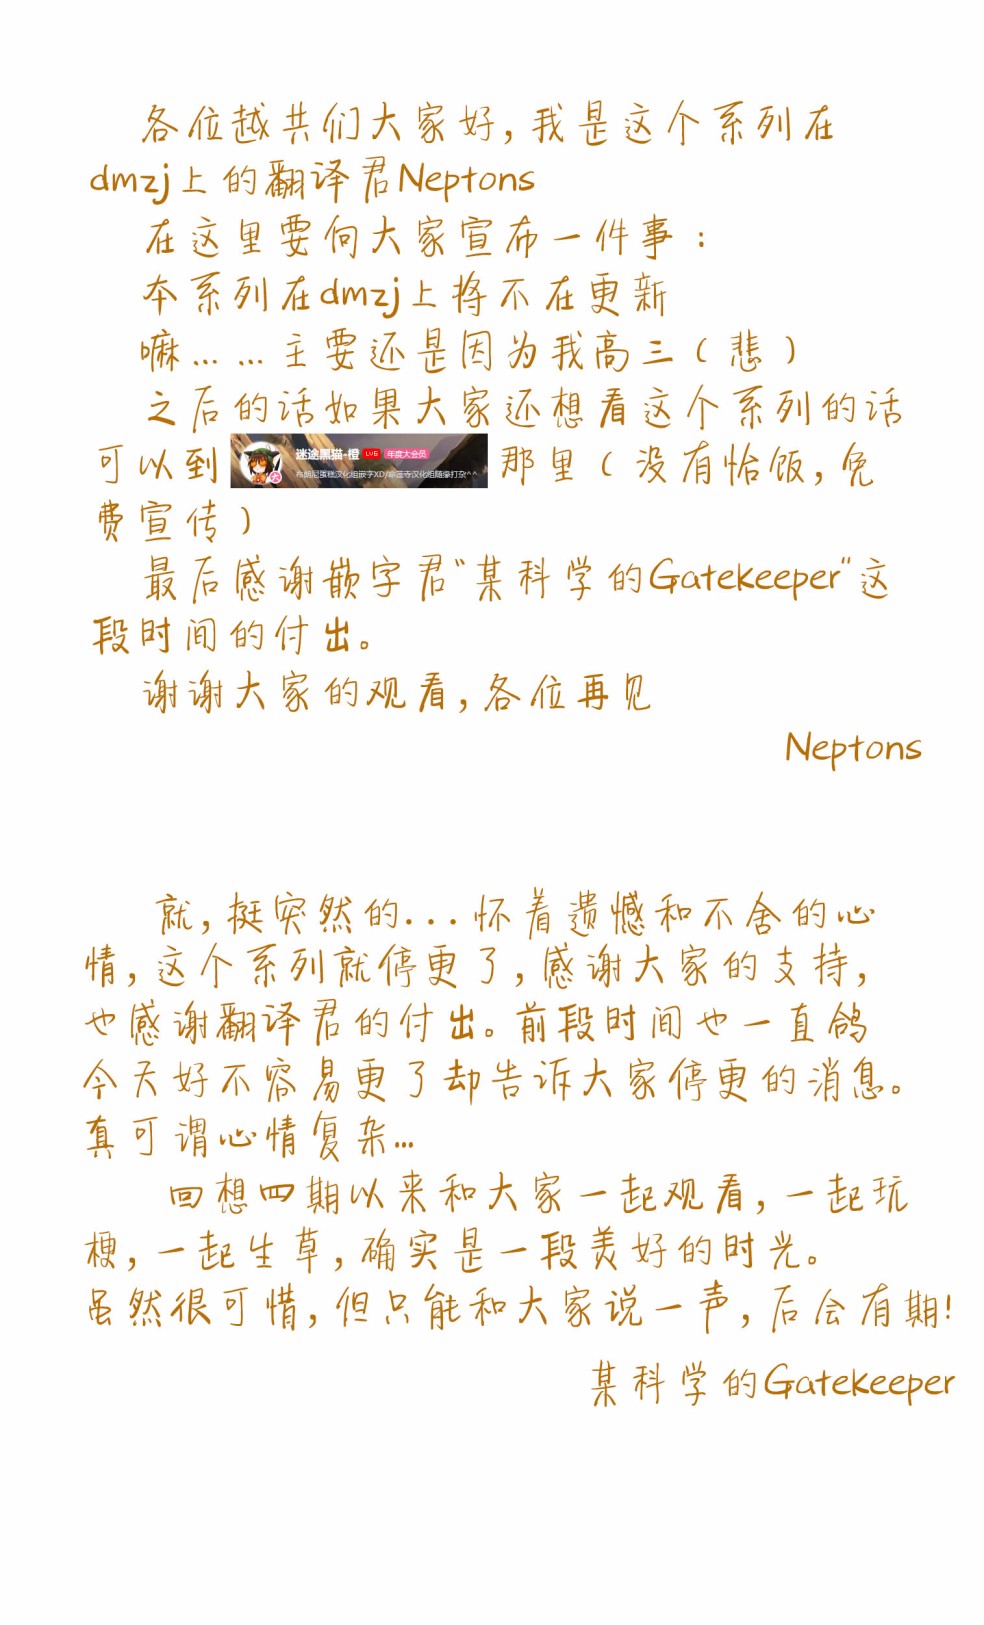 各位越共们大家好,我是这个系列在
dmzj上的翻译君Neptons
在这里要向大家宣布一件事：
本系列在dmzj上将不在更新
嘛……主要还是因为我高三（悲）
之后的话如果大家还想看这个系列的话
可以到 迷途黑猫-橙 LV6 年度大会员 那里（没有恰饭,免
布朗尼蛋糕汉化组嵌字XD/命莲寺汉化组随缘打杂^^
费宣传）
最后感谢嵌字君“某科学的Gatekeeper”这
段时间的付出。
谢谢大家的观看,各位再见
Neptons
就,挺突然的...怀着遗憾和不舍的心
情,这个系列就停更了,感谢大家的支持,
也感谢翻译君的付出。前段时间也一直鸽
今天好不容易更了却告诉大家停更的消息。
真可谓心情复杂…
回想四期以来和大家一起观看,一起玩
梗,一起生草,确实是一段美好的时光。
虽然很可惜,但只能和大家说一声,后会有期!
某科学的Gatekeeper